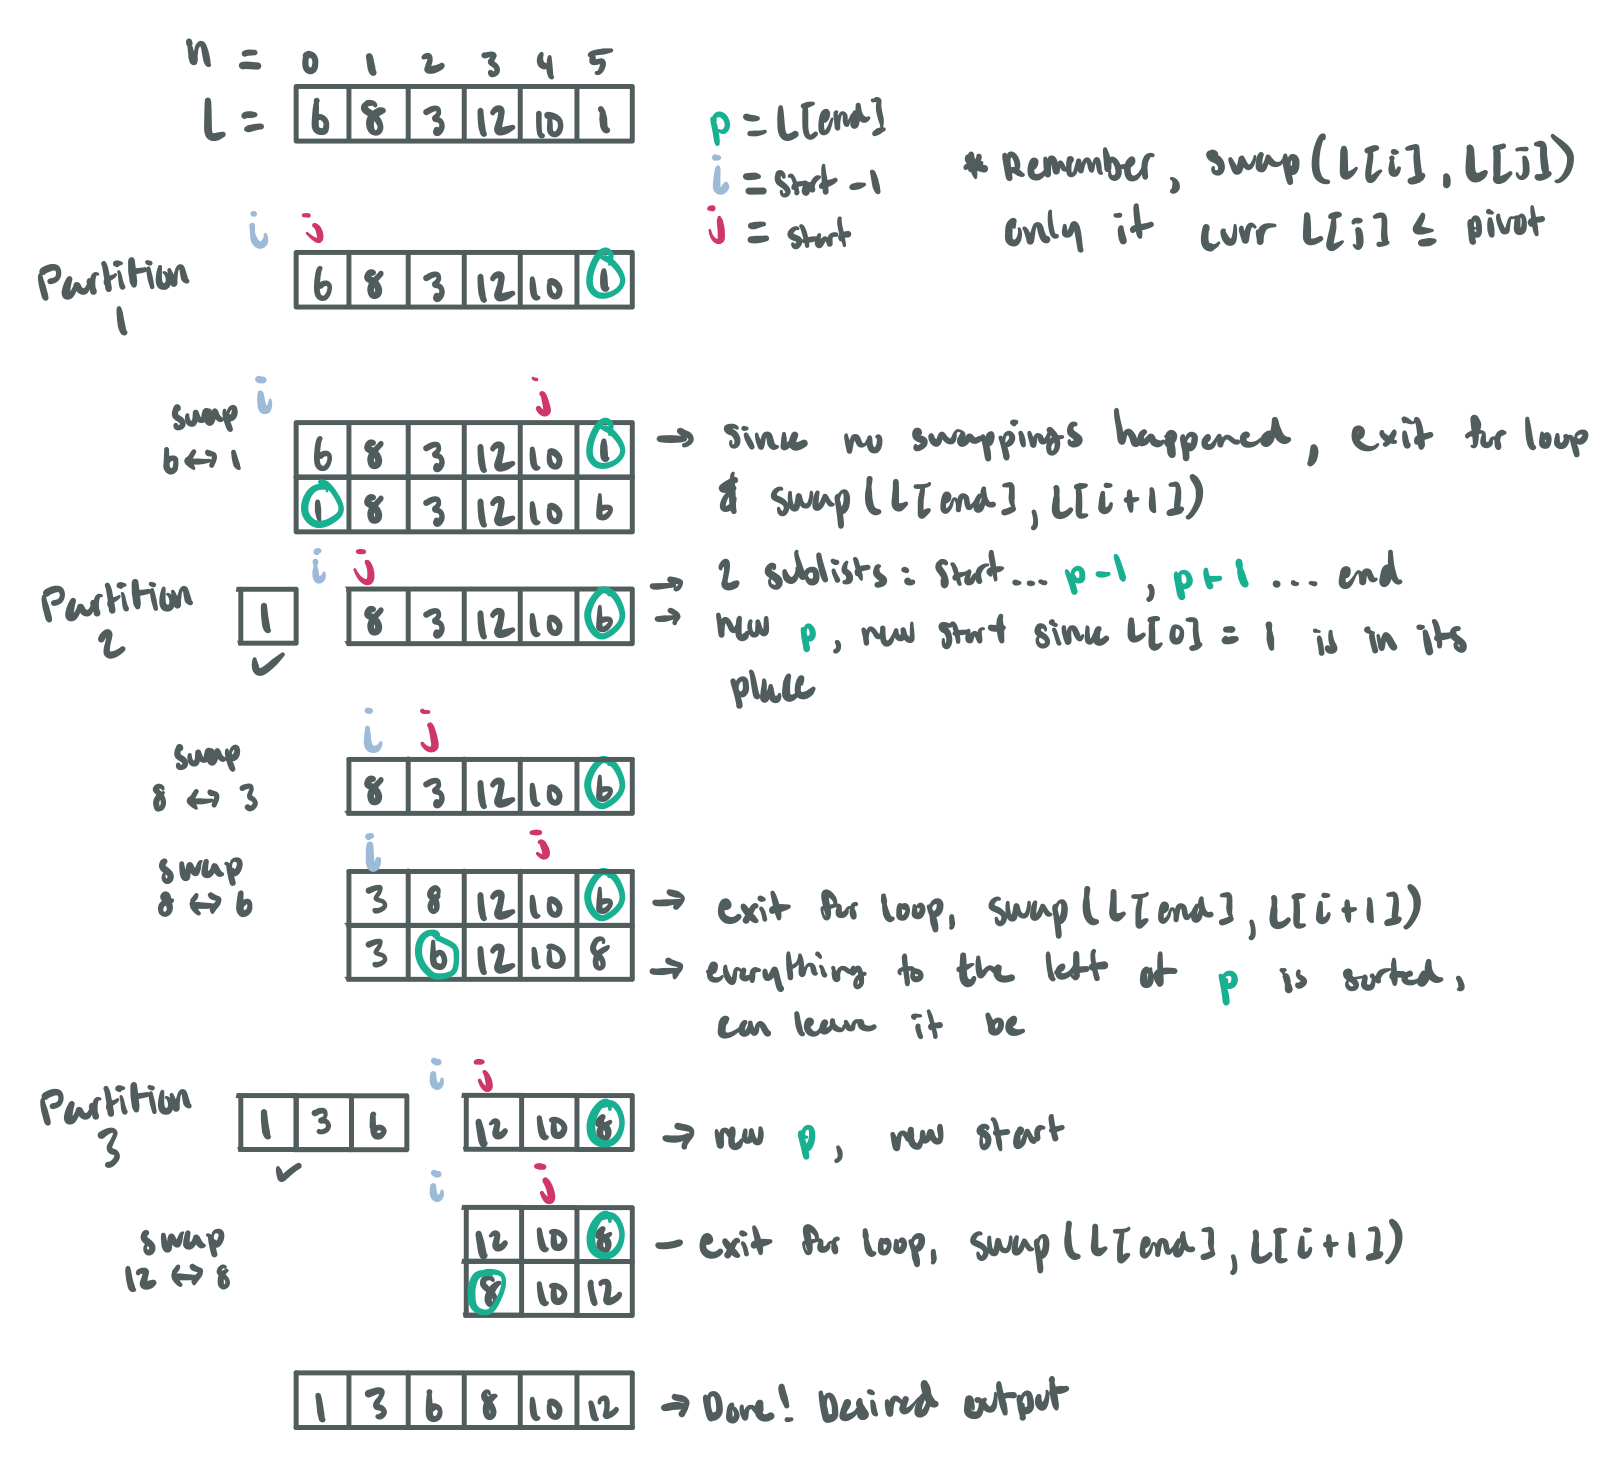 n = 0 1 2 3 4 5
L = 6 8 3 12 10 1
p = L[end]
i = start -1
j = start
* Remember, swap(L[i], L[j])
only if curr L[j] ≤ pivot
i j
Partition
1
6 8 3 12 10 1
i j
swap
6 ↔ 1
6 8 3 12 10 1
1 8 3 12 10 6
→ since no swappings happened, exit for loop
& swap(L[end], L[i+1])
i j
Partition
2
1 8 3 12 10 6
✓
→ 2 sublists: start... p-1, p+1 ... end
→ new p, new start since L[0] = 1 is in its
place
i j
swap
8 ↔ 3
8 3 12 10 6
i j
swap
8 ↔ 6
3 8 12 10 6
3 6 12 10 8
→ exit for loop, swap(L[end], L[i+1])
→ everything to the left of p is sorted,
can leave it be
i j
Partition
3
1 3 6 12 10 8
✓
→ new p, new start
i j
swap
12 ↔ 8
12 10 8
8 10 12
- exit for loop, swap(L[end], L[i+1])
1 3 6 8 10 12
→ Done! Desired output